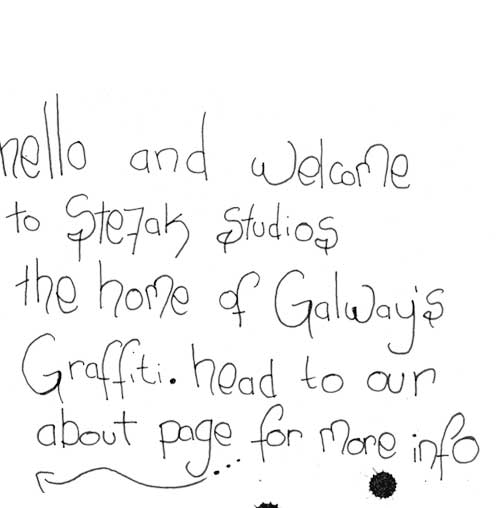 hello and welcome
to Ste7ak Studios
the home of Galway's
Graffiti. head to our
about page... for more info